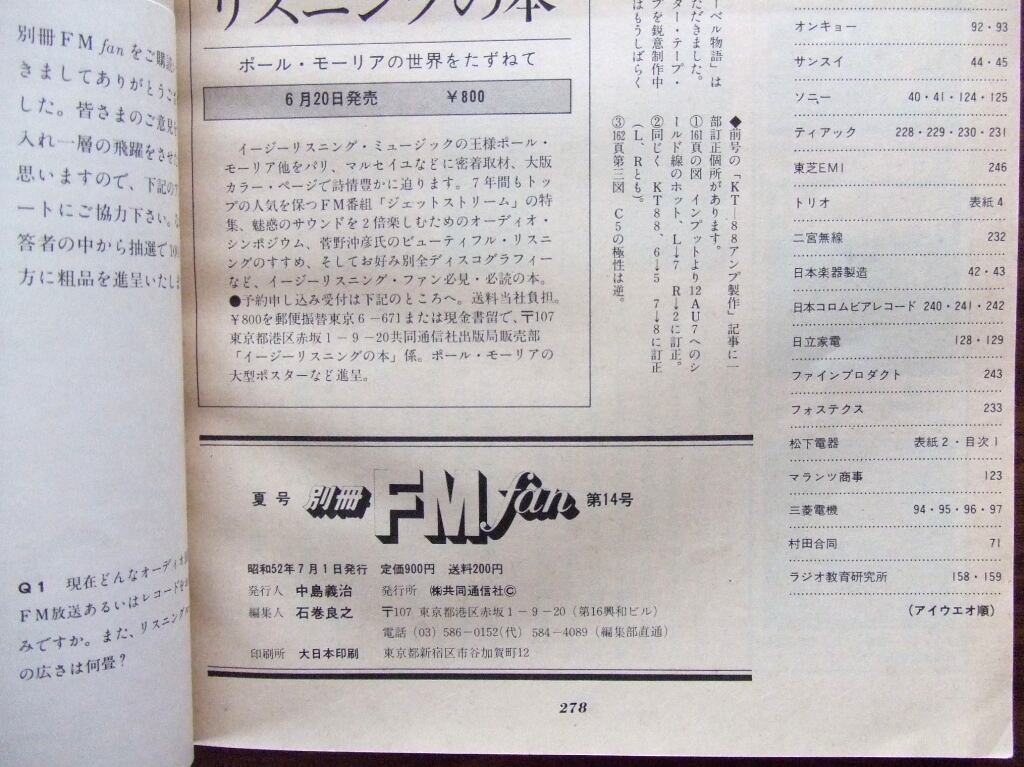 別冊FM fanをご購読
きましてありがとうござ
した。皆さまのご意見を
入れ一層の飛躍をさせた
思いますので、下記のア
ートにご協力下さい。
答者の中から抽選で100
方に粗品を進呈いたしま
Q1 現在どんなオーディオ
FM放送あるいはレコードを
みですか。また、リスニング
の広さは何畳？
リスニングの本
ポール・モーリアの世界をたずねて
6月20日発売 ￥800
イージーリスニング・ミュージックの王様ポール・
モーリア他をパリ、マルセイユなどに密着取材、大版
カラー・ページで詩情豊かに迫ります。7年間もトッ
プの人気を保つFM番組「ジェットストリーム」の特
集、魅惑のサウンドを2倍楽しむためのオーディオ・
シンポジウム、菅野沖彦氏のビューティフル・リスニ
ングのすすめ、そしてお好み別全ディスコグラフィー
など、イージーリスニング・ファン必見・必読の本。
●予約申し込み受付は下記のところへ。送料当社負担。
￥800を郵便振替東京6－671または現金書留で、〒107
東京都港区赤坂1－9－20共同通信社出版局販売部
「イージーリスニングの本」係。ポール・モーリアの
大型ポスターなど進呈。
ーベル物語」は
ただきました。
ター・テープ・
プを鋭意制作中
はもうしばらく
◆前号の「KT―88アンプ製作」記事に一
部訂正個所があります。
①161頁の図 インプットより12AU7へのシ
ールド線のホット、L→7 R→2に訂正。
②同じく KT88、6→5 7→8に訂正
(L、Rとも)。
③162頁第三図 C5の極性は逆。
オンキョー 92・93
サンスイ 44・45
ソニー 40・41・124・125
ティアック 228・229・230・231
東芝EMI 246
トリオ 表紙4
二宮無線 232
日本楽器製造 42・43
日本コロムビアレコード 240・241・242
日立家電 128・129
ファインプロダクト 243
フォステクス 233
松下電器 表紙2・目次1
マランツ商事 123
三菱電機 94・95・96・97
村田合同 71
ラジオ教育研究所 158・159
(アイウエオ順)
夏号 別冊 FM fan 第14号
昭和52年7月1日発行 定価900円 送料200円
発行人 中島義治 発行所 ㈱共同通信社Ⓒ
編集人 石巻良之 〒107 東京都港区赤坂1－9－20 (第16興和ビル)
電話 (03) 586－0152(代) 584－4089 (編集部直通)
印刷所 大日本印刷 東京都新宿区市谷加賀町12
278